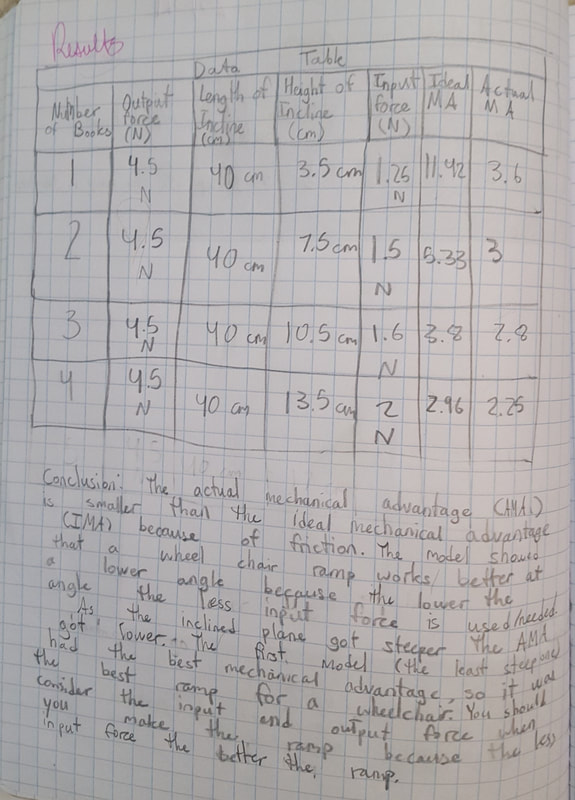 Results
Data Table
Number of Books | Output Force (N) | Length of Incline (cm) | Height of Incline (cm) | Input force (N) | Ideal MA | Actual MA
1 | 4.5 N | 40 cm | 3.5 cm | 1.25 N | 11.42 | 3.6
2 | 4.5 N | 40 cm | 7.5 cm | 1.5 N | 5.33 | 3
3 | 4.5 N | 40 cm | 10.5 cm | 1.6 N | 3.8 | 2.8
4 | 4.5 N | 40 cm | 13.5 cm | 2 N | 2.96 | 2.25
Conclusion: The actual mechanical advantage (AMA)
is smaller than the ideal mechanical advantage
(IMA) because of friction. The model showed
that a wheel chair ramp works better at
a lower angle because the lower the
angle the less input force is used/needed.
As the inclined plane got steeper the AMA
got lower. The first model (the least steep one)
had the best mechanical advantage, so it was
the best ramp for a wheelchair. You should
consider the input and output force when
you make the ramp because the less
input force the better the ramp.